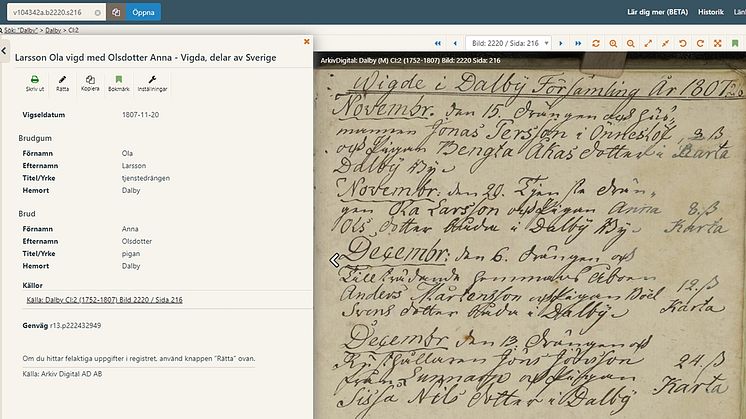 v104342a.b2220.s216
Öppna
Lär dig mer (BETA)
Historik
Sök: "Dalby" > Dalby > CI:2
Larsson Ola vigd med Olsdotter Anna - Vigda, delar av Sverige
Skriv ut
Rätta
Kopiera
Bokmärk
Inställningar
Vigseldatum 1807-11-20
Brudgum
Förnamn Ola
Efternamn Larsson
Titel/Yrke tjenstedrängen
Hemort Dalby
Brud
Förnamn Anna
Efternamn Olsdotter
Titel/Yrke pigan
Hemort Dalby
Källor
Källa: Dalby CI:2 (1752-1807) Bild 2220 / Sida 216
Genväg r13.p222432949
Om du hittar felaktiga uppgifter i registret, använd knappen "Rätta" ovan.
Källa: Arkiv Digital AD AB
Bild: 2220 / Sida: 216
ArkivDigital: Dalby (M) CI:2 (1752-1807) Bild: 2220 Sida: 216
Wigde i Dalby Församling År 1807
Novembr. den 15. Drängen och Hus-
mannen Jonas Persson i Önneslöf 8 ß
och Pigan Bengta Åkas dotter i Karta
Dalby By
Novembr: den 20. Tjenste drän-
gen Ola Larsson och Pigan Anna 8.ß
Ols dotter båda i Dalby By Karta
Decembr: den 6. Drängen och
Tillträdande hemmans Åboen 12.ß
Anders Mårtensson och Pigan Boel Karta
Svens dotter båda i Dalby
Decembr den 13. Drängen och
Jöns 24.ß
från och Pigan Karta
Sissa Nils dotter i Dalby